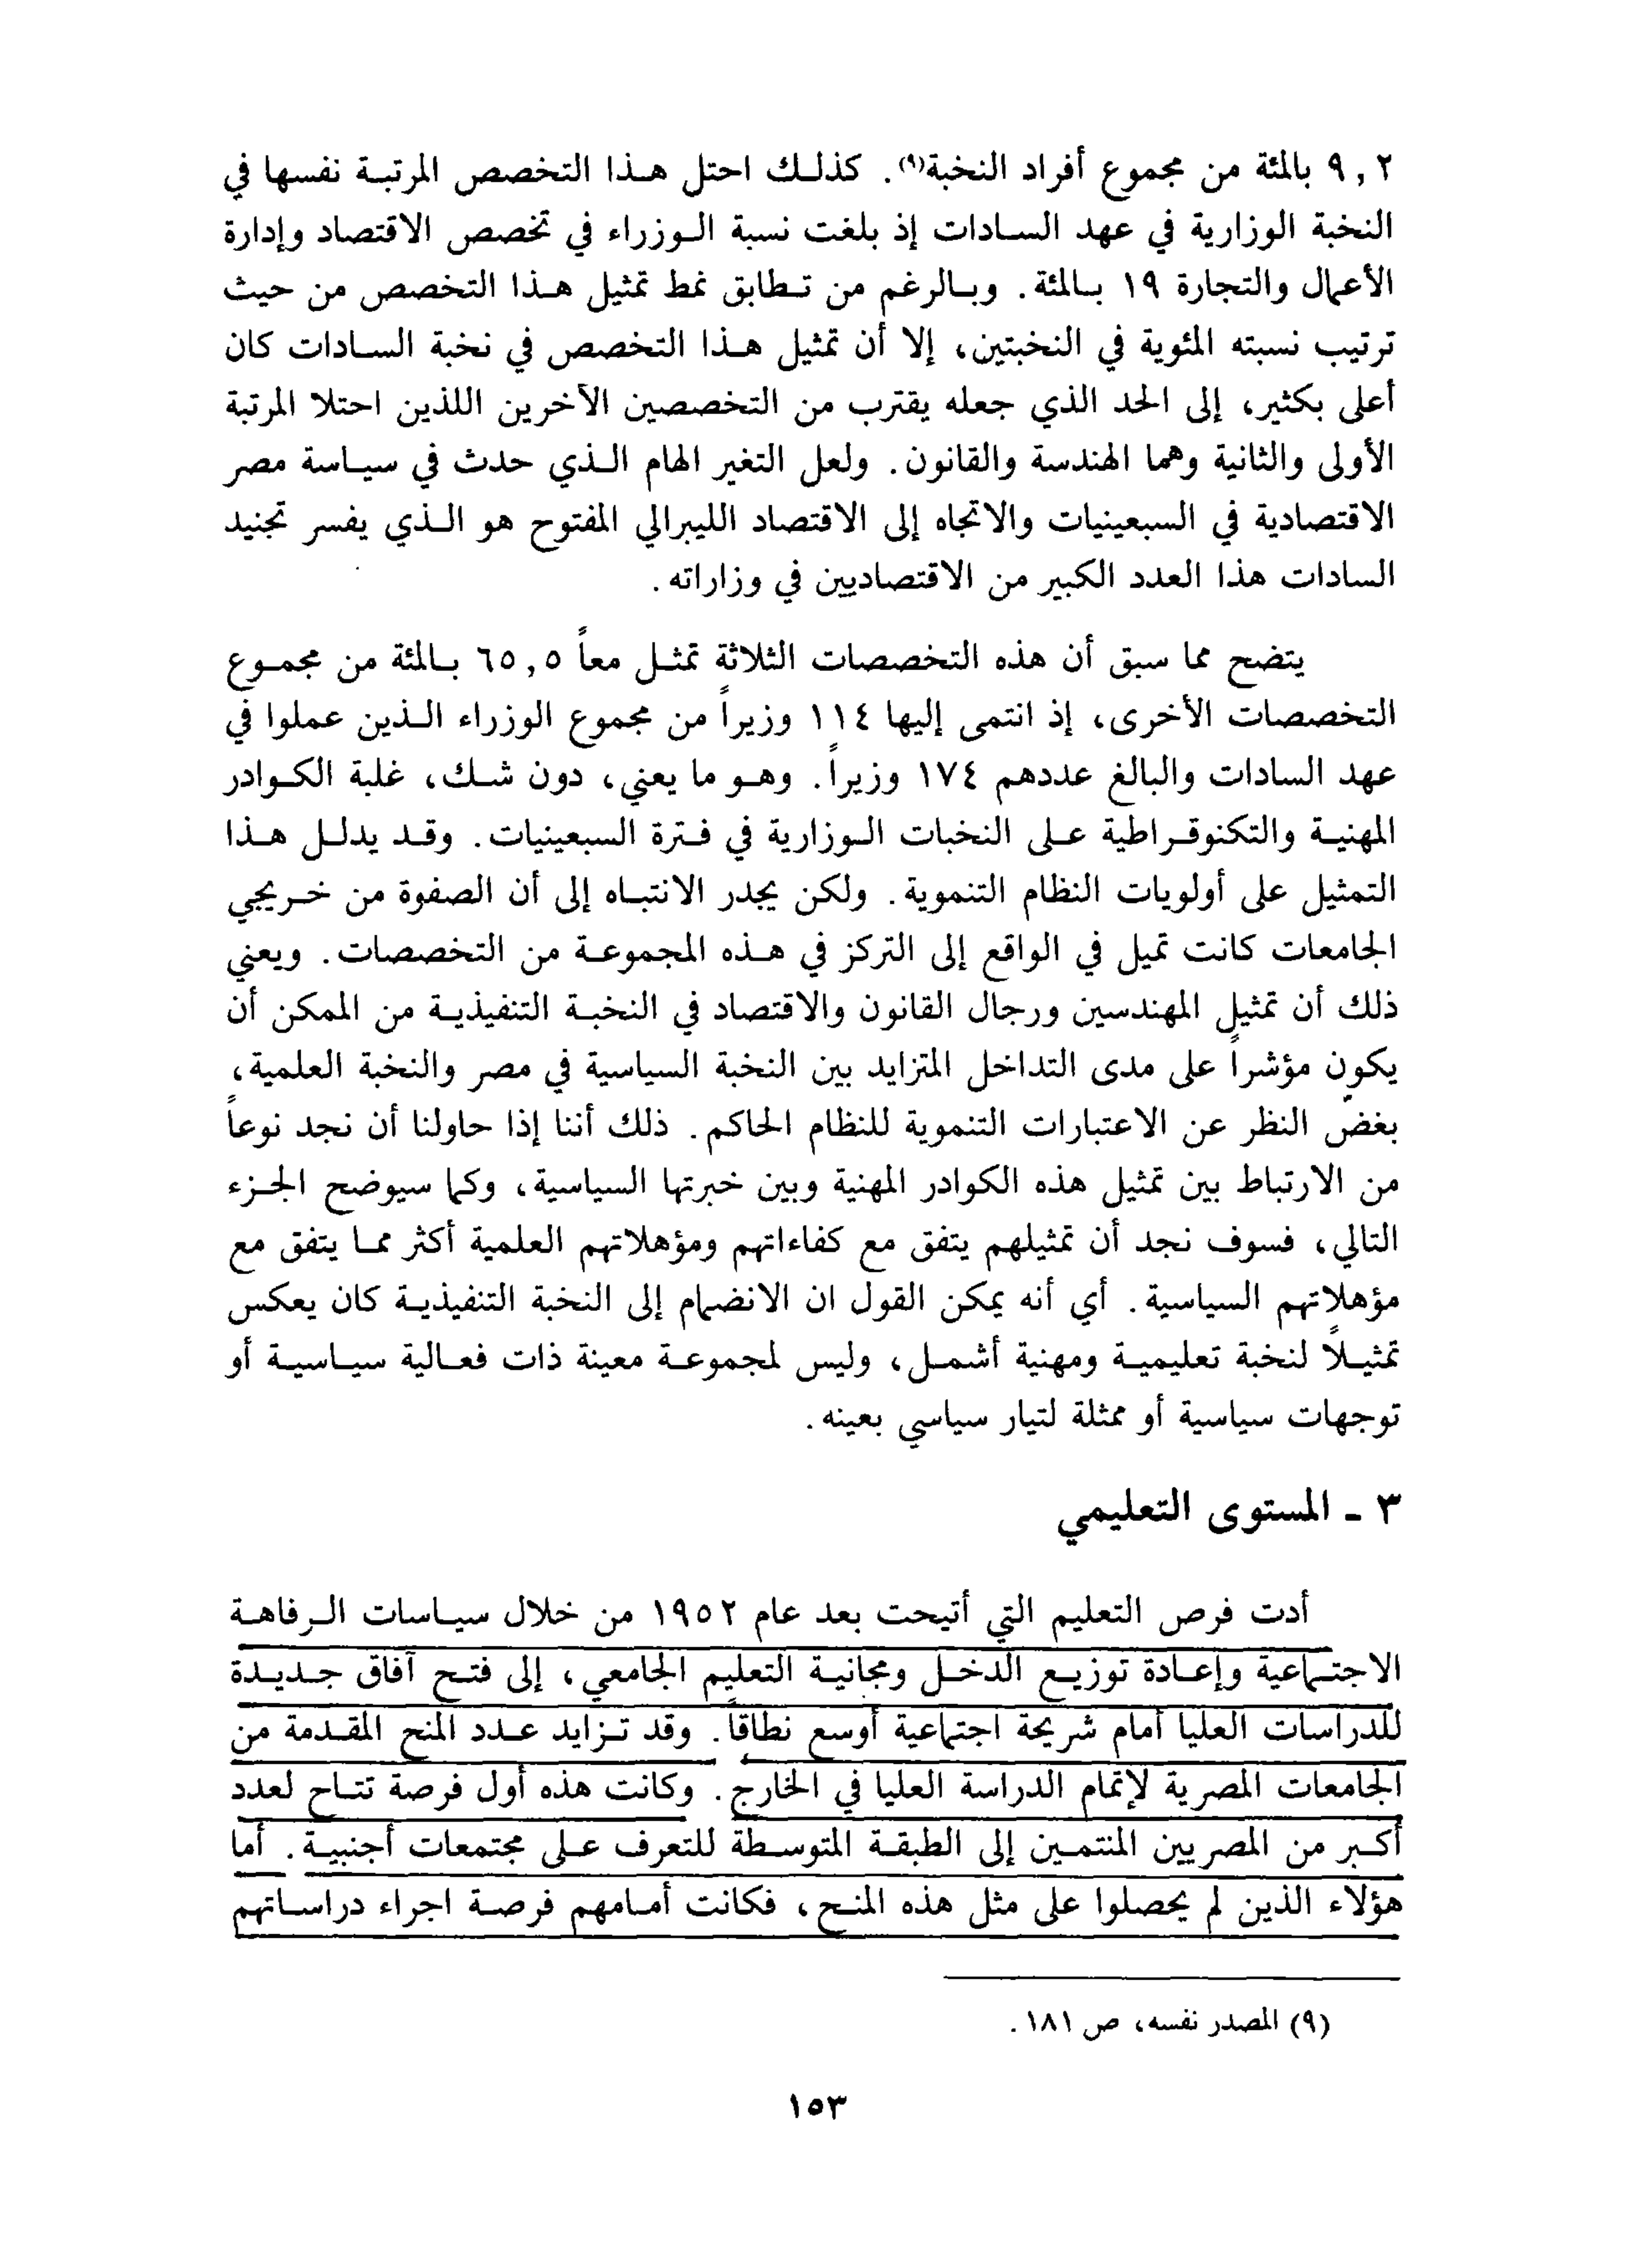 ٩,٢ بالمئة من مجموع أفراد النخبة(٩). كذلك احتل هذا التخصص المرتبة نفسها في
النخبة الوزارية في عهد السادات إذ بلغت نسبة الوزراء في تخصص الاقتصاد وإدارة
الأعمال والتجارة ١٩ بالمئة. وبالرغم من تطابق نمط تمثيل هذا التخصص من حيث
ترتيب نسبته المئوية في النخبتين، إلا أن تمثيل هذا التخصص في نخبة السادات كان
أعلى بكثير، إلى الحد الذي جعله يقترب من التخصصين الآخرين اللذين احتلا المرتبة
الأولى والثانية وهما الهندسة والقانون. ولعل التغير الهام الذي حدث في سياسة مصر
الاقتصادية في السبعينيات والاتجاه إلى الاقتصاد الليبرالي المفتوح هو الذي يفسر تجنيد
السادات هذا العدد الكبير من الاقتصاديين في وزاراته.
يتضح مما سبق أن هذه التخصصات الثلاثة تمثل معاً ٦٥,٥ بالمئة من مجموع
التخصصات الأخرى، إذ انتمى إليها ١١٤ وزيراً من مجموع الوزراء الذين عملوا في
عهد السادات والبالغ عددهم ١٧٤ وزيراً. وهو ما يعني، دون شك، غلبة الكوادر
المهنية والتكنوقراطية على النخبات الوزارية في فترة السبعينيات. وقد يدلل هذا
التمثيل على أولويات النظام التنموية. ولكن يجدر الانتباه إلى أن الصفوة من خريجي
الجامعات كانت تميل في الواقع إلى التركز في هذه المجموعة من التخصصات. ويعني
ذلك أن تمثيل المهندسين ورجال القانون والاقتصاد في النخبة التنفيذية من الممكن أن
يكون مؤشراً على مدى التداخل المتزايد بين النخبة السياسية في مصر والنخبة العلمية،
بغضّ النظر عن الاعتبارات التنموية للنظام الحاكم. ذلك أننا إذا حاولنا أن نجد نوعاً
من الارتباط بين تمثيل هذه الكوادر المهنية وبين خبرتها السياسية، وكما سيوضح الجزء
التالي، فسوف نجد أن تمثيلهم يتفق مع كفاءاتهم ومؤهلاتهم العلمية أكثر مما يتفق مع
مؤهلاتهم السياسية. أي أنه يمكن القول ان الانضمام إلى النخبة التنفيذية كان يعكس
تمثيلاً لنخبة تعليمية ومهنية أشمل، وليس لمجموعة معينة ذات فعالية سياسية أو
توجهات سياسية أو ممثلة لتيار سياسي بعينه.
٣ ـ المستوى التعليمي
أدت فرص التعليم التي أتيحت بعد عام ١٩٥٢ من خلال سياسات الرفاهة
الاجتماعية وإعادة توزيع الدخل ومجانية التعليم الجامعي، إلى فتح آفاق جديدة
للدراسات العليا أمام شريحة اجتماعية أوسع نطاقاً. وقد تزايد عدد المنح المقدمة من
الجامعات المصرية لإتمام الدراسة العليا في الخارج. وكانت هذه أول فرصة تتاح لعدد
أكبر من المصريين المنتمين إلى الطبقة المتوسطة للتعرف على مجتمعات أجنبية. أما
هؤلاء الذين لم يحصلوا على مثل هذه المنح، فكانت أمامهم فرصة اجراء دراساتهم
(٩) المصدر نفسه، ص ١٨١.
١٥٣